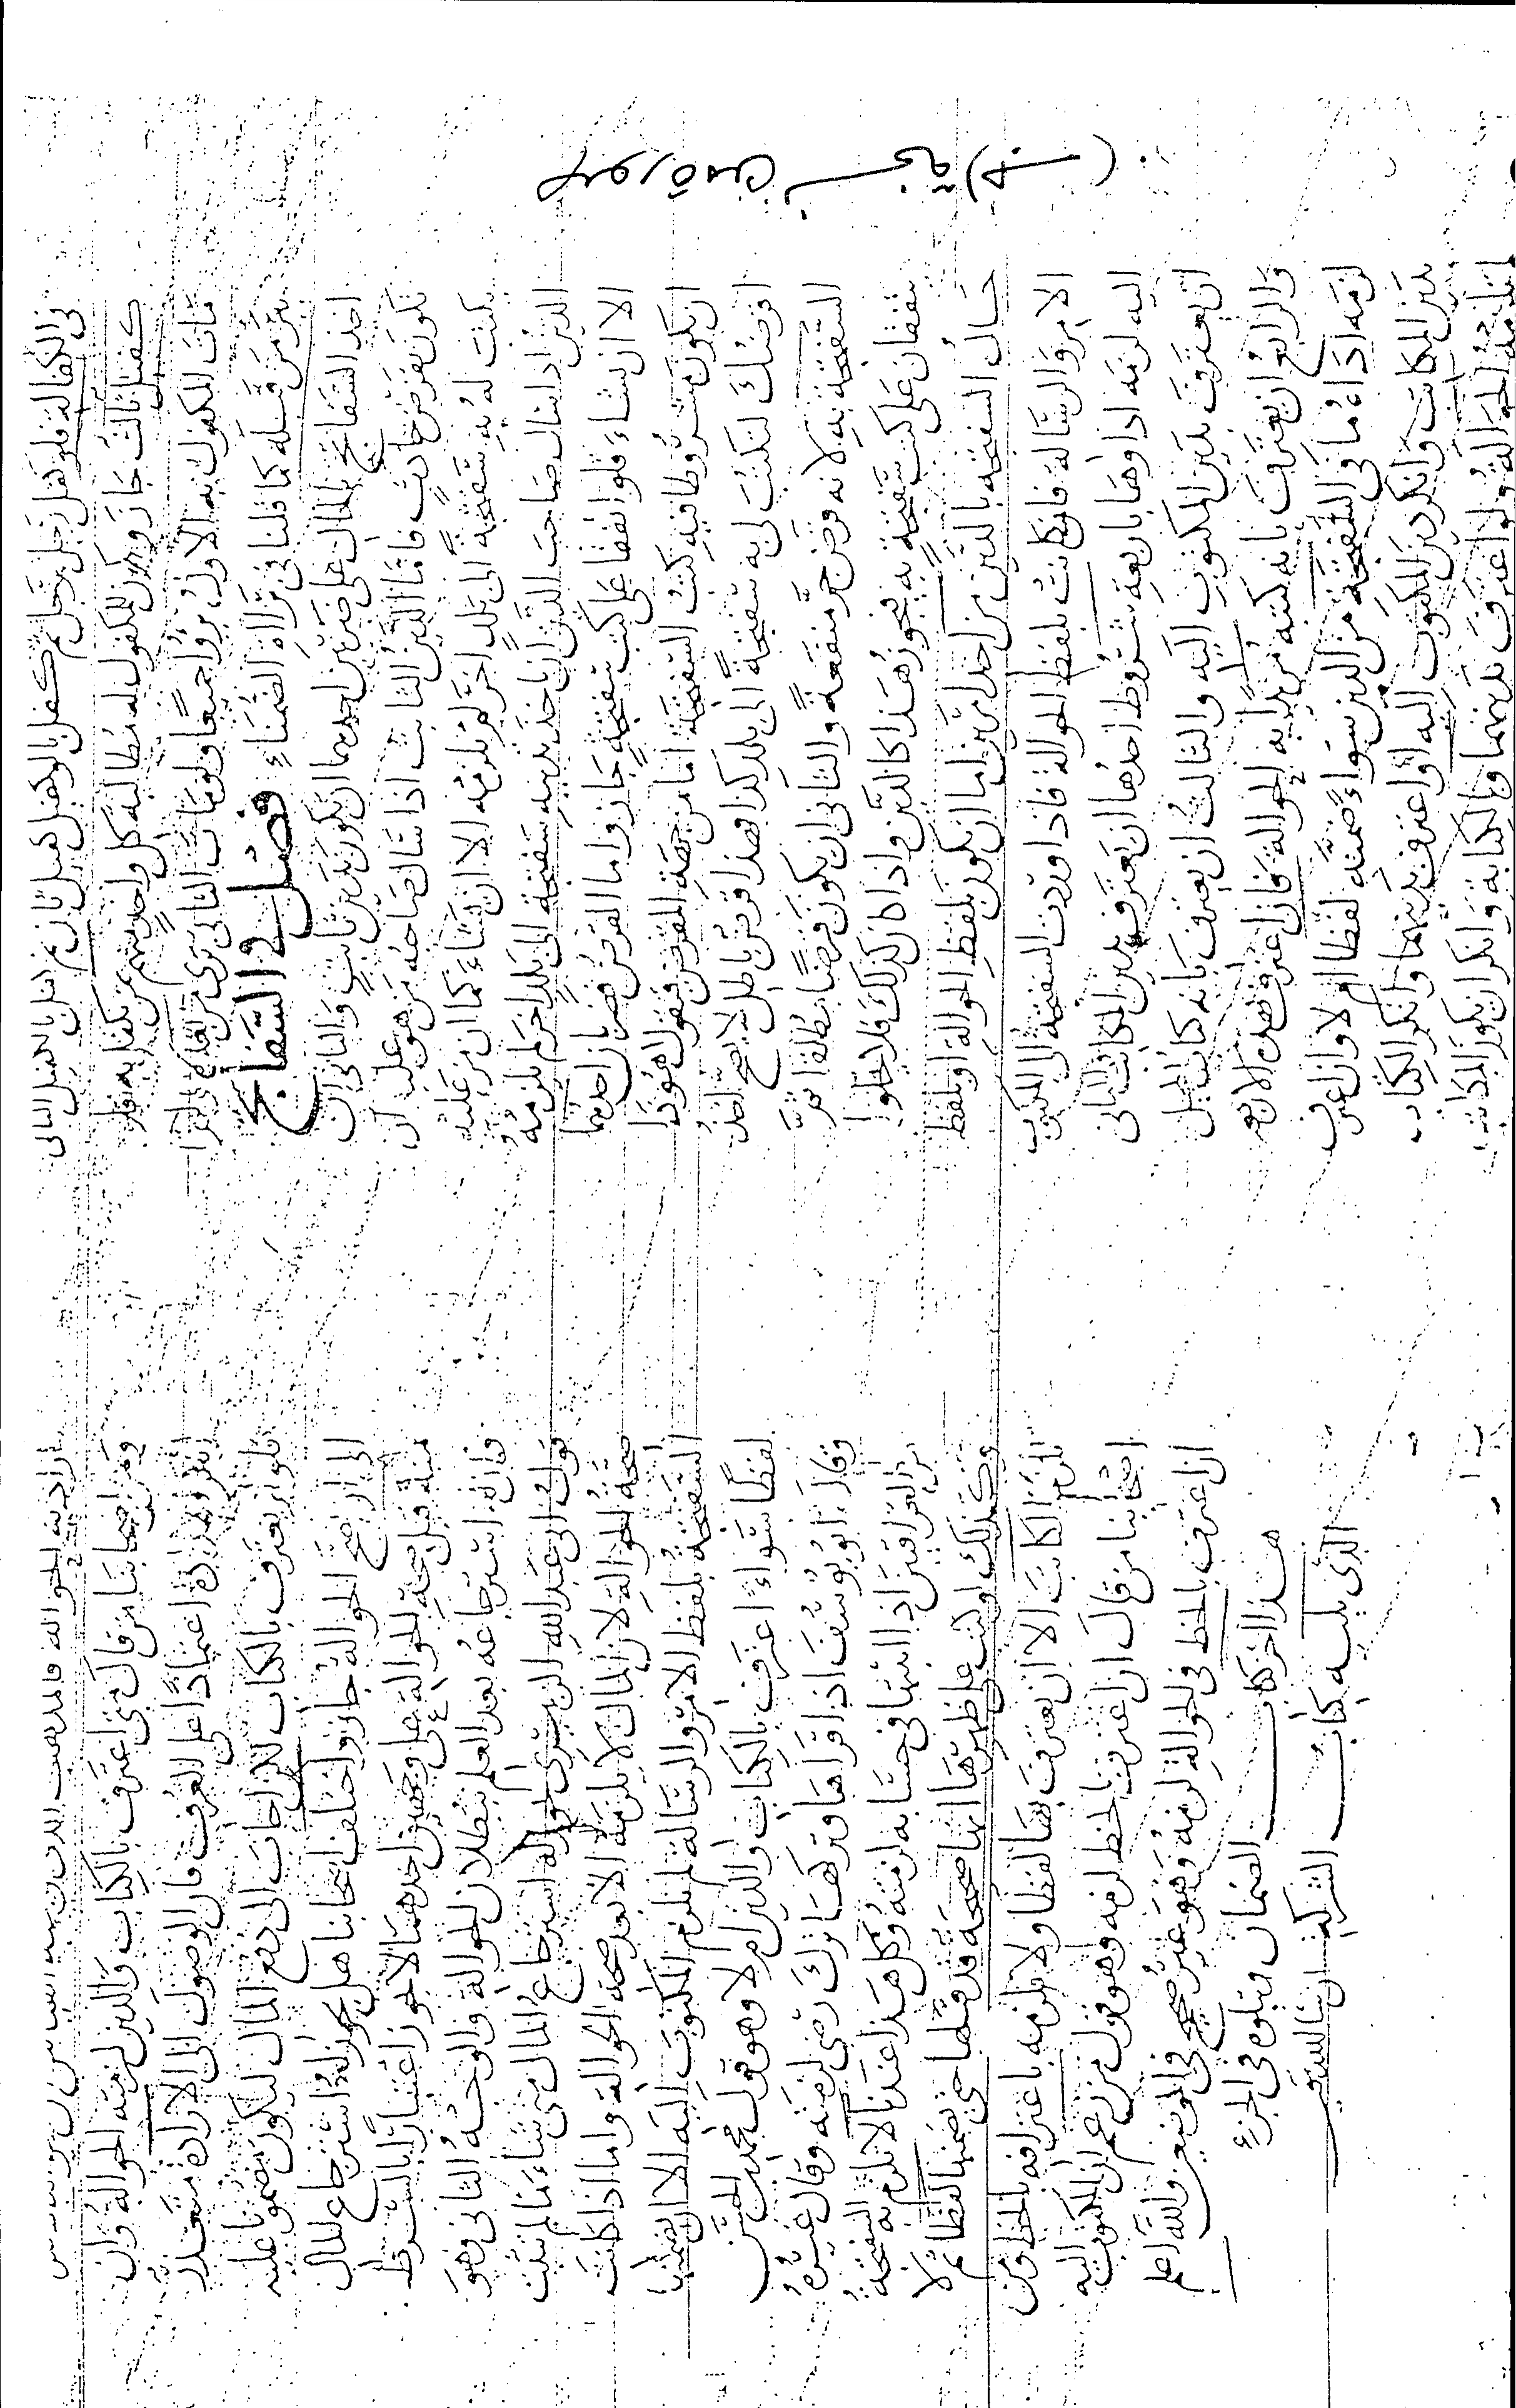 جزء من نسخة (هـ)
في الكفالة فلو كفل رجل برجل ثم كفل بالوكيل كفيل ثان ثم كفل بالكفيل الثاني
كفيل ثالث جاز وكان للمكفول له مطالبة كل واحد منهم بمن كفل به فلو
مات المكفول به الاول برؤا جميعا ولو مات الثاني برئ من بعده
يبرأ من قبله كما قلنا في براة الضمناء فصل في السفاتج
اخذ السفاتج بالمال على ضربين احدهما ان يكون بدين ثابت والثاني ان
يكون بقرض حادث فاما الدين الثابت اذا سال صاحبه من هو عليه ان
يكتب له به سفتجة الى بلد اخر لم يلزمه الا ان يشاء كما ان من عليه
الدين اذا سال صاحب الدين ان ياخذ بدينه سفتجة الى بلد اخر لم يلزمه
الا ان يشاء فلو اتفقا على كتب سفتجة جاز واما القرض فضربان احدهما
ان يكون مشروطا فيه كتب السفتجة اما من جهة المقرض فيقول هوذا
اقرضك لتكتب لي به سفتجة الى بلد كذا فهذا قرض باطل لا يصح اخذ
السفتجة به لانه قرض جر منفعة والثاني ان يكون قرضا مطلقا ثم
يتفقان على كتب سفتجة به فيجوز هذا كالدين واذا كان كذلك فلا يخلوا
حال السفتجة بالدين من احد امرين اما ان يكون بلفظ الحوالة او بلفظ
الامر والرسالة فان كانت بلفظ الحوالة فاذا وردت السفتجة الى المكتوب
اليه لزمه اداوها باربعة شروط احدها ان يعترف بدين الكاتب والثاني
ان يعترف بدين المكتوب اليه والثالث ان يعترف بانه كتاب المحيل
والرابع ان يعترف بانه كتبه مريدا به الحوالة فان اعترف بهذه الاربعة
لزمه اداء ما في السفتجة من الدين سواء ضمنه لفظا ام لا وان اعترف
بدين الكاتب وانكر دين المكتوب اليه او اعترف بدينهما وانكر الكتاب
لم تلزمه الحوالة ولو اعترف بدينهما وبالكتابة وانكر ان يكون الكاتب
اراد به الحوالة فالمذهب الذي
ومن اصحابنا من قال متى اعترف بالكتاب والدين لزمته الحوالة وان
انكر الارادة اعتمادا على العرف فان الوصول الى الارادة متعذر
فلو لم يعترف بالكتاب لكن اجاب الى دفع المال ليكون مضمونا عليه
الى ان تصح الحوالة جاز واختلف اصحابنا هل يجوز له استرجاع المال
منه قبل صحة الحوالة على وجهين احدهما لا يجوز اعتبارا بالشرط
فان له استرجاعه بعد العلم ببطلان الحوالة والوجه الثاني وهو
قول ابي عبد الله الزبيري له استرجاع المال متى شاء ما لم تثبت
صحة الحوالة لان المال لا يلزمه الا بعد صحة الحوالة واما اذا كانت
السفتجة بلفظ الامر والرسالة لم تلزم المكتوب اليه الا ان يضمنها
لفظا سواء اعترف بالكتاب والدين ام لا وهو قول محمد بن الحسن
وقال ابو يوسف اذا قراها وتركها ترك رضى لزمته وقال غيره
من العراقيين اذا اثبتها في حسابه لزمته وكل هذا عندنا لا تلزم به السفتجة
وكذلك لو كتب على ظهرها انها صحيحة قد قبلتها حتى يضمنها لفظا ثم لا
تلزم الكاتب الا ان يعترف بها لفظا ولا تلزمه باعترافه بالخط ومن
اصحابنا من قال ان اعترف بالخط لزمه وهو قول من زعم ان المكتوب اليه
ان اعترف بالخط في الحوالة لزمه وهو غير صحيح في الموضعين والله اعلم
هذا اخر كتاب الضمان ويتلوه في الجزء
الذي يليه كتاب الشركة ان شاء الله